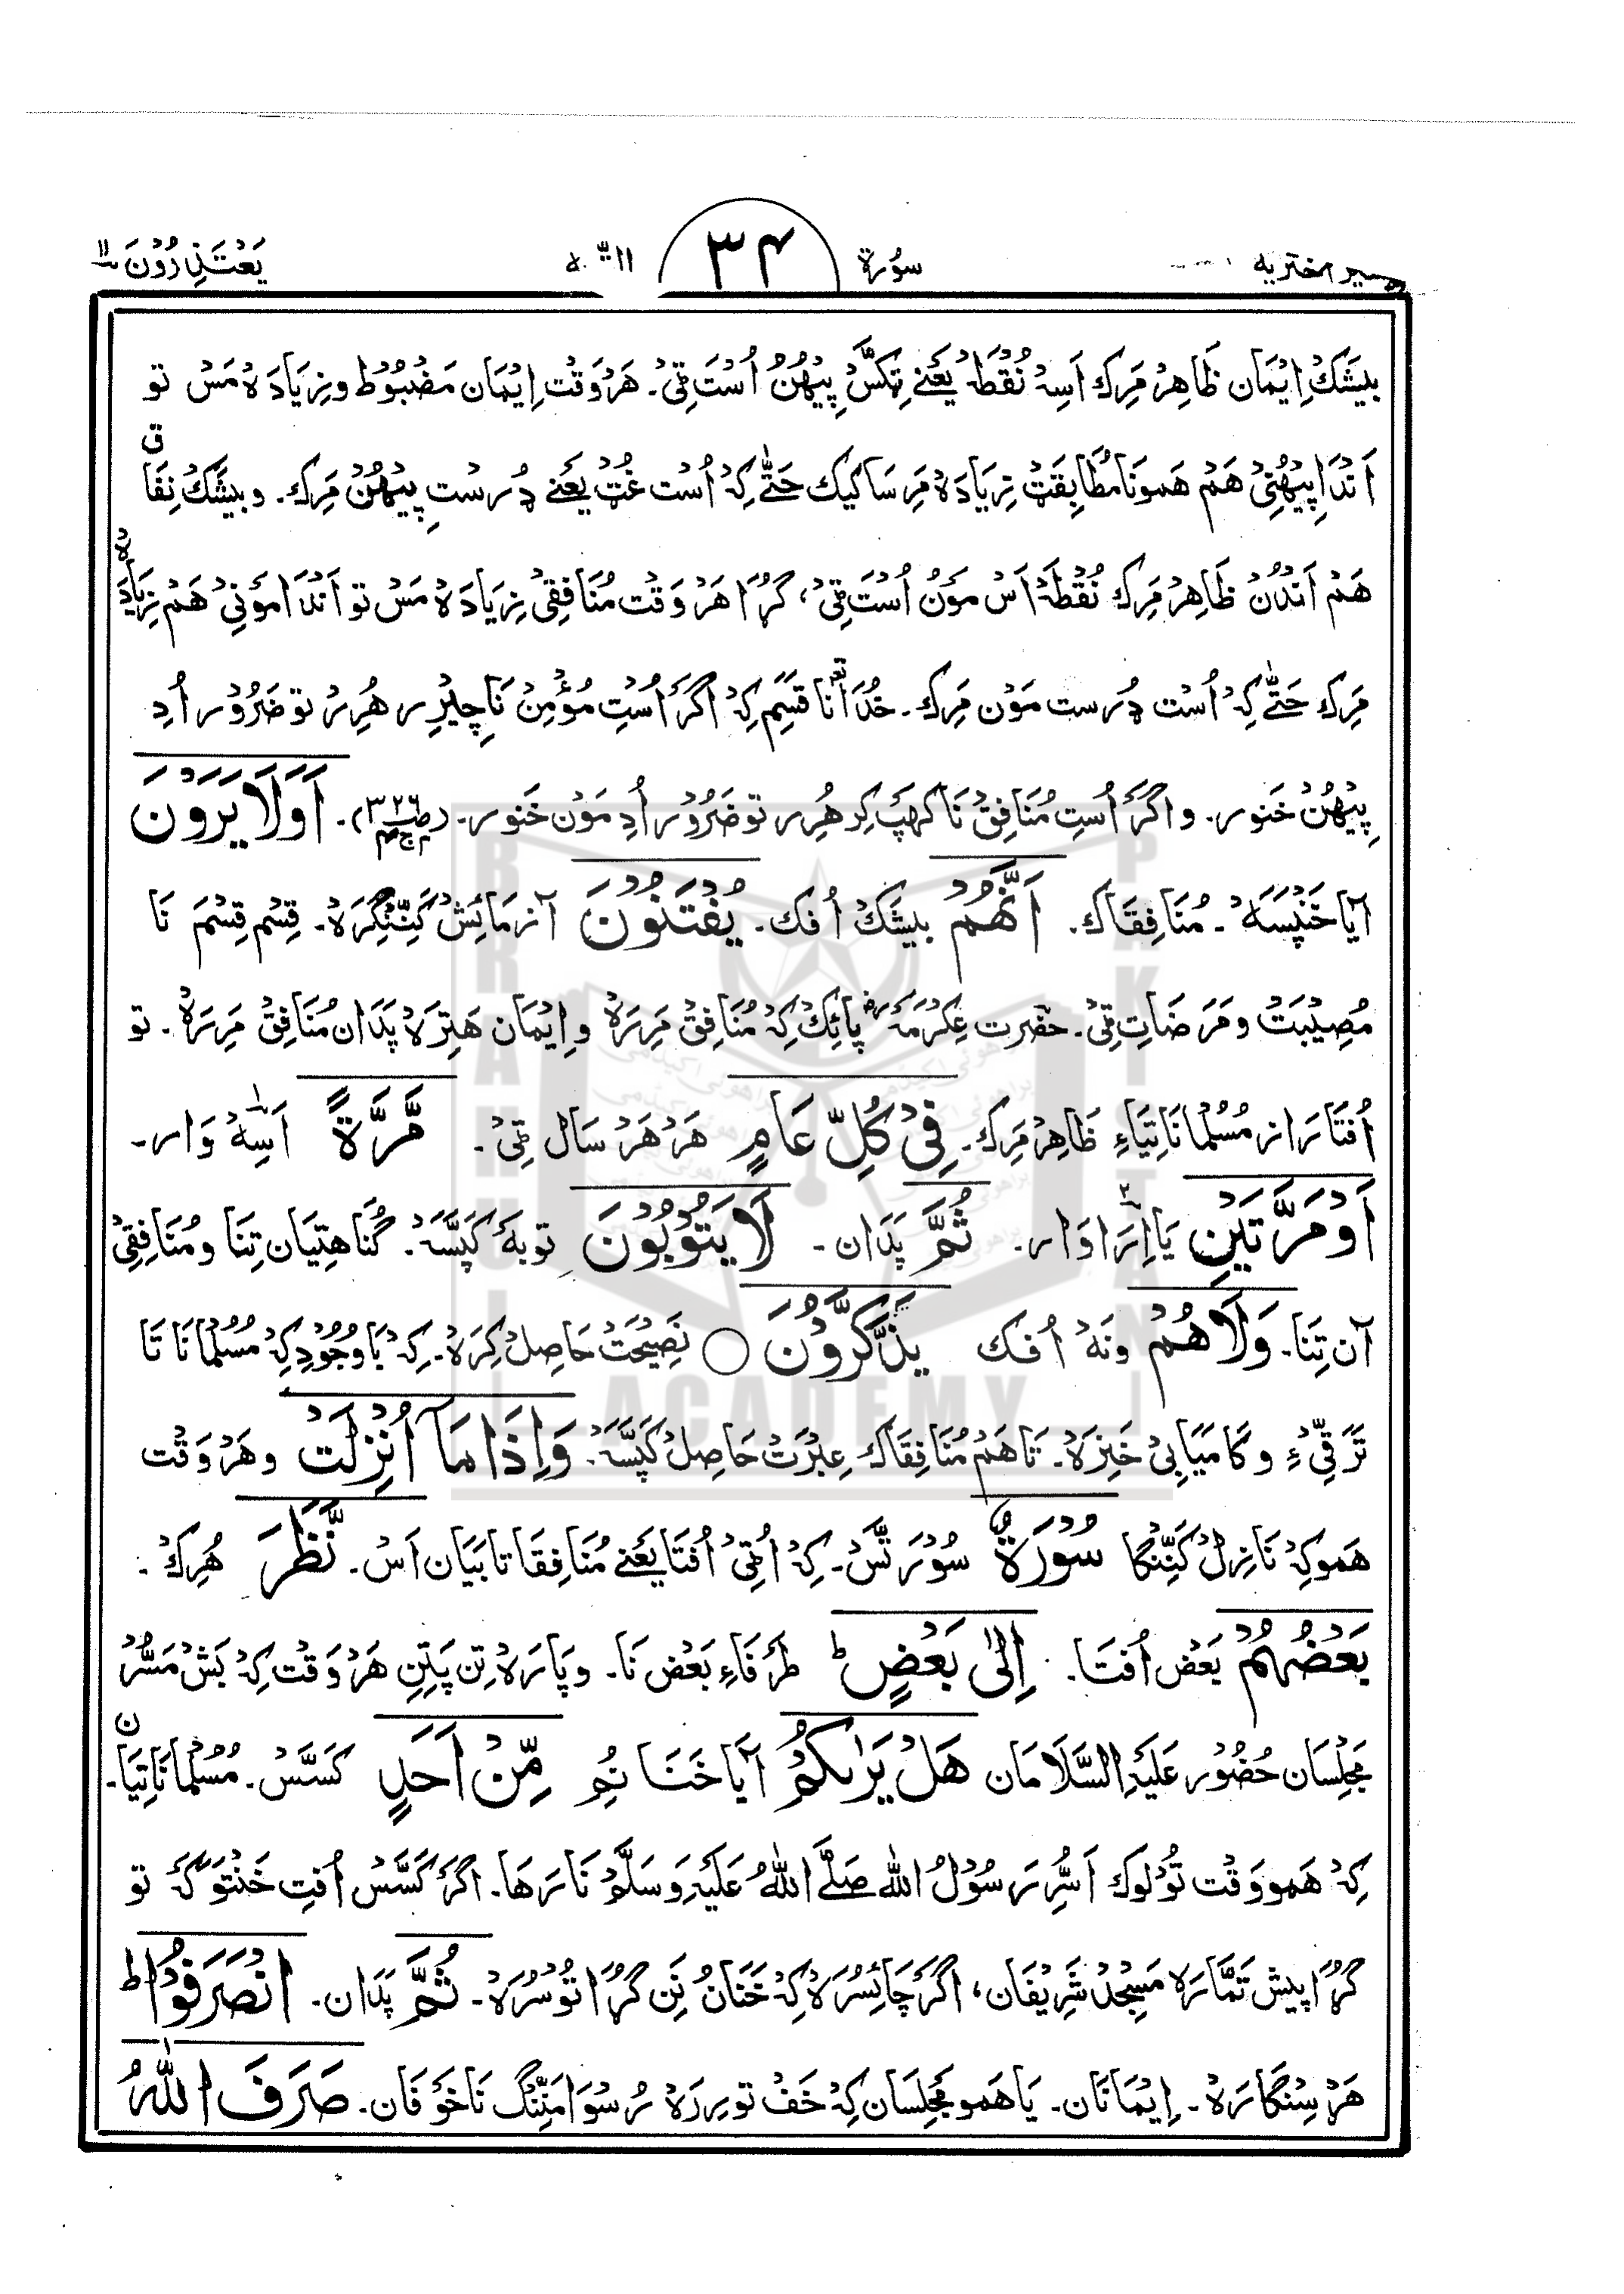 تفسیر اختریه سُوْرة ٣٤ التّوبة يَعْتَذِرُوْنَ ١١
بیشکْ اِیْمَان ظَاهِرْ مَرِک اَسِہ نُقْطَہ یَعْنِے ٹِکَّسْ پِیْهُنْ اُسْت ٹِیْ۔ هَرْوَقْت اِیْمَان مَضْبُوْط و زِیَادَہ مَسْ تو
اَنْدَا پِیْهُنِیْ هَمْ هَمونَا مُطَابِقَتْ زِیَادَہ مَرِسَا کَیِک حَتّٰی کِہ اُسْت غُٹْ یَعْنِے دُرست پِیْهُنْ مَرِک۔ و بیشَکْ نِفَاق
هَمْ اَنْدُنْ ظَاهِرْ مَرِک نُقْطَہ اَسْ مَوْنُ اُسْت ٹِیْ، گُڑَا هَرْ وَقْت مُنَافِقِیْ زِیَادَہ مَسْ تو اَنْدَا مَوْنِیْ هَمْ زِیَادَہ
مَرِک حَتّٰی کِہ اُسْت دُرست مَوْن مَرِک۔ خُدَا تعَ نَا قَسَمْ کِہ اَگَرْ اُسْتِ مُؤْمِنْ نَا چِیْرِر هُرِرْ تو ضَرُوْر اُدِ
پِیْهُنْ خَنور۔ و اَگَرْ اُسْتِ مُنَافِقْ نَا کہَپ کِر هُرِر تو ضَرُوْر اُدِ مَوْن خَنور۔ (صـ٣٢٦ ج٢م)۔ اَوَلَا يَرَوْنَ
آیَا خَنْپَسَہ۔ مُنَافِقَاک۔ اَنَّهُمْ بیشَکْ اُفک۔ يُفْتَنُوْنَ آزمَائِشْ کَنِّنْگِرَہ۔ قِسْم قِسْمَ نَا
مُصِیْبَتْ و مَرَضَاتِ ٹِیْ۔ حضرت عِکْرِمَہ رض پَائِکْ کِہ مُنَافِقْ مَرِرَہ و اِیْمَان هَتِرَہ پَدَان مُنَافِقْ مَرِرَہ۔ تو
اُفْتَا رَاز مُسُلْمَانَاتِیَاءِ ظَاهِرْ مَرِک۔ فِيْ كُلِّ عَامٍ هَرْ هَرْ سَال ٹِیْ۔ مَّرَّةً اَسِہْ وَار۔
اَوْ مَرَّتَيْنِ یَا اِرَا وَار۔ ثُمَّ پَدَان۔ لَا يَتُوْبُوْنَ توبَہ کَپَّسَہ۔ گُنَاهتِیَان تِنَا و مُنَافِقِیْ
آن تِنَا۔ وَلَا هُمْ وَنَہ اُفک يَذَّكَّرُوْنَ ○ نَصِیْحَتْ حَاصِلْ کِرَہ۔ کِہ بَاوُجُوْدِکِہ مُسُلْمَانَا تَا
تَرَقِّیْءِ و کَامیَابِیْ خَنِرَہ۔ تَاهَمْ مُنَافِقَاک عِبْرَتْ حَاصِلْ کَپَّسَہ۔ وَاِذَا مَآ اُنْزِلَتْ و هَرْوَقْت
هَموکِہ نَازِلْ کَنِّنْگا سُوْرَةٌ سُوْرَتَّسْ۔ کِہ اُٹِیْ اُفْتَا یَعْنِے مُنَافِقَاتَا بَیَان اَسْ۔ نَّظَرَ هُرِکْ۔
بَعْضُهُمْ بَعْض اُفْتَا۔ اِلٰى بَعْضٍ ط طَرَفَاءِ بَعْض نَا۔ و پَارَہ تِن پَتِن هَرْ وَقْت کِہ بَشْ مَسُّرْ
مَجْلِسَان حُضُوْر عَلَیْہِ السَّلَامَان هَلْ يَرٰىكُمْ آیَا خَنَا نُمْ مِّنْ اَحَدٍ کَسَّسْ۔ مُسُلْمَانَاتِیَان۔
کِہ هَمووَقْت تُوْلوک اَسُّرْ رَسُوْلُ اللّٰہ صَلَّی اللّٰهُ عَلَیْہِ وَسَلَّمْ نَا رَهَا۔ اَگَرْ کَسَّسْ اُفْتِ خَنْتَوَکْہ تو
گُڑَا پیش تَمَّارَہ مَسْجِدْ شَرِیْفَان، اَگَرْ چَائِسُرَہ کِہ خَنَانُ نَن گُڑَا توْسُرَہ۔ ثُمَّ پَدَان۔ انْصَرَفُوْا ط
هَرْسِنْگارَہ۔ اِیْمَانَان۔ یَا هَمو مَجْلِسَان کِہ خَفْ تورِرَہ رُسْوَا مَنِّنْگ نَا خَوْفَان۔ صَرَفَ اللّٰهُ
BRAHUI ACADEMY PAKISTAN